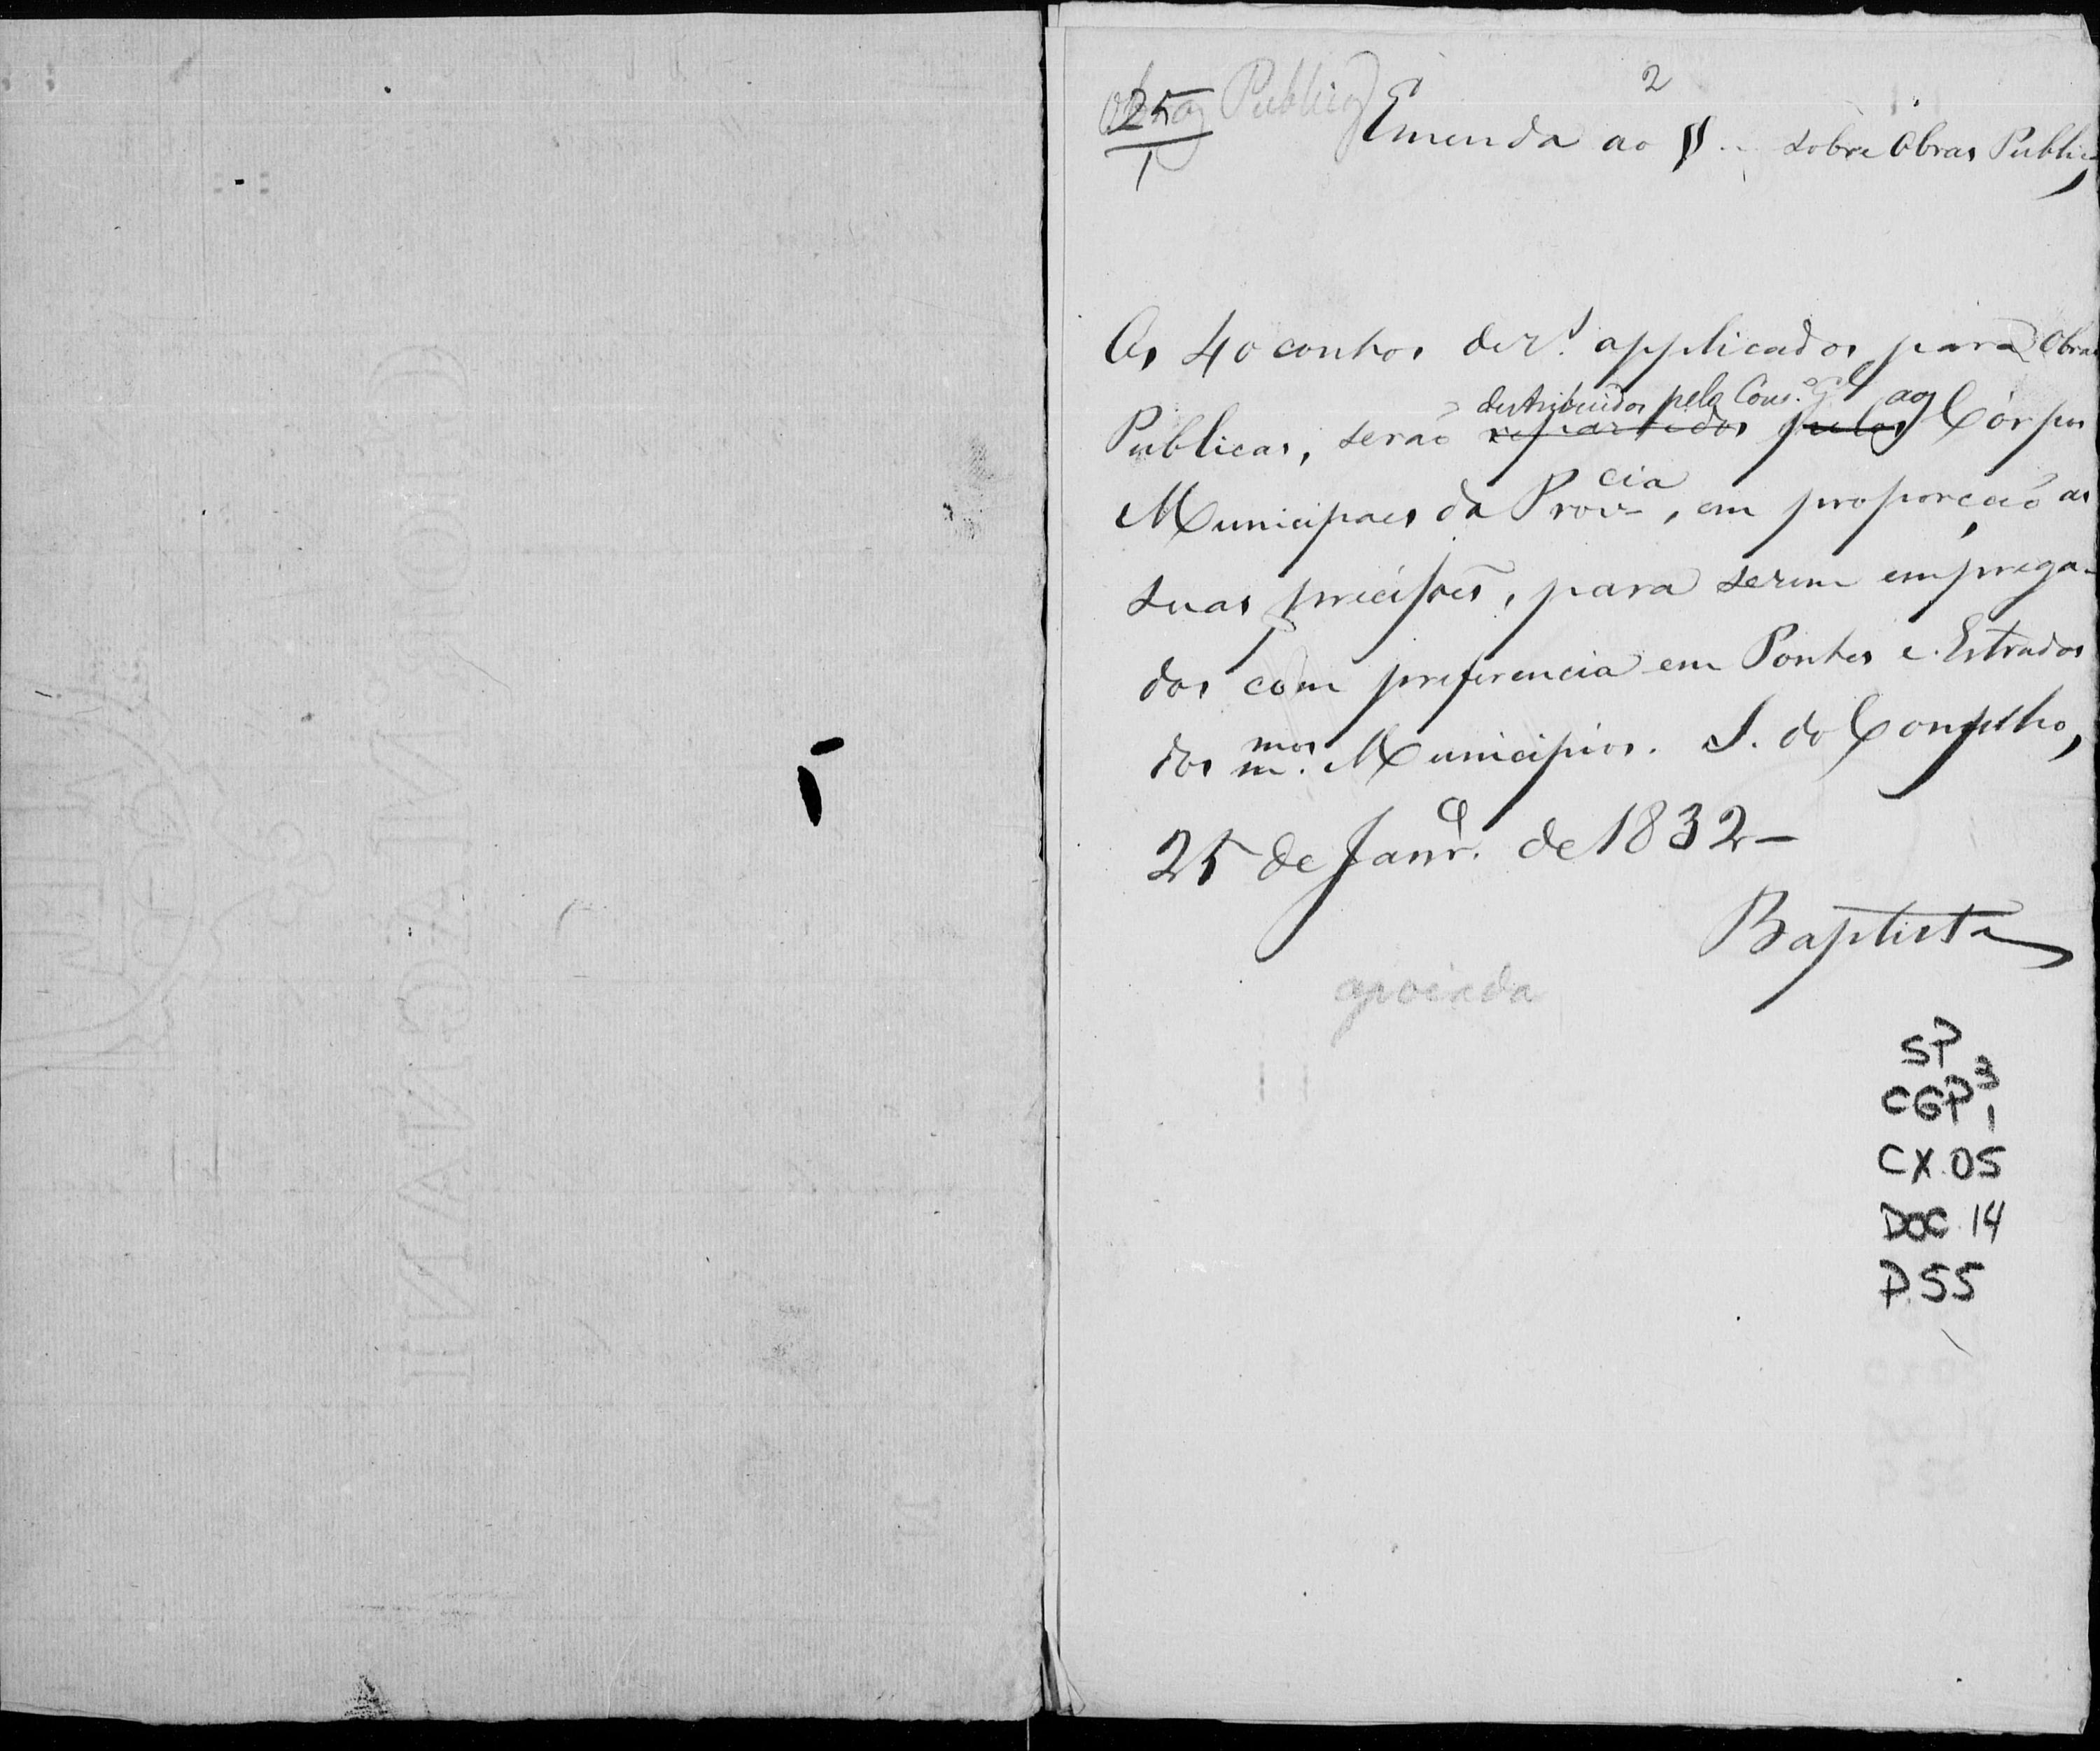 2
Obras Publicas
25
1
Emenda ao § .. sobre Obras Publicas
Os 40 contos de rs. applicados para Obras
destribuidos pelo Cons.o G.l aos
Publicas, serão repartidos pelos Córpos
Municipaes da Prov.cia, em proporção as
suas precisões, para serem emprega-
dos com preferencia em Pontes e Estradas
dos m.mos Municipios. S. do Conselho,
25 de Janr.o de 1832 –
Baptista
apoiada
SP
CGP 3
1
CX.05
DOC.14
P.55